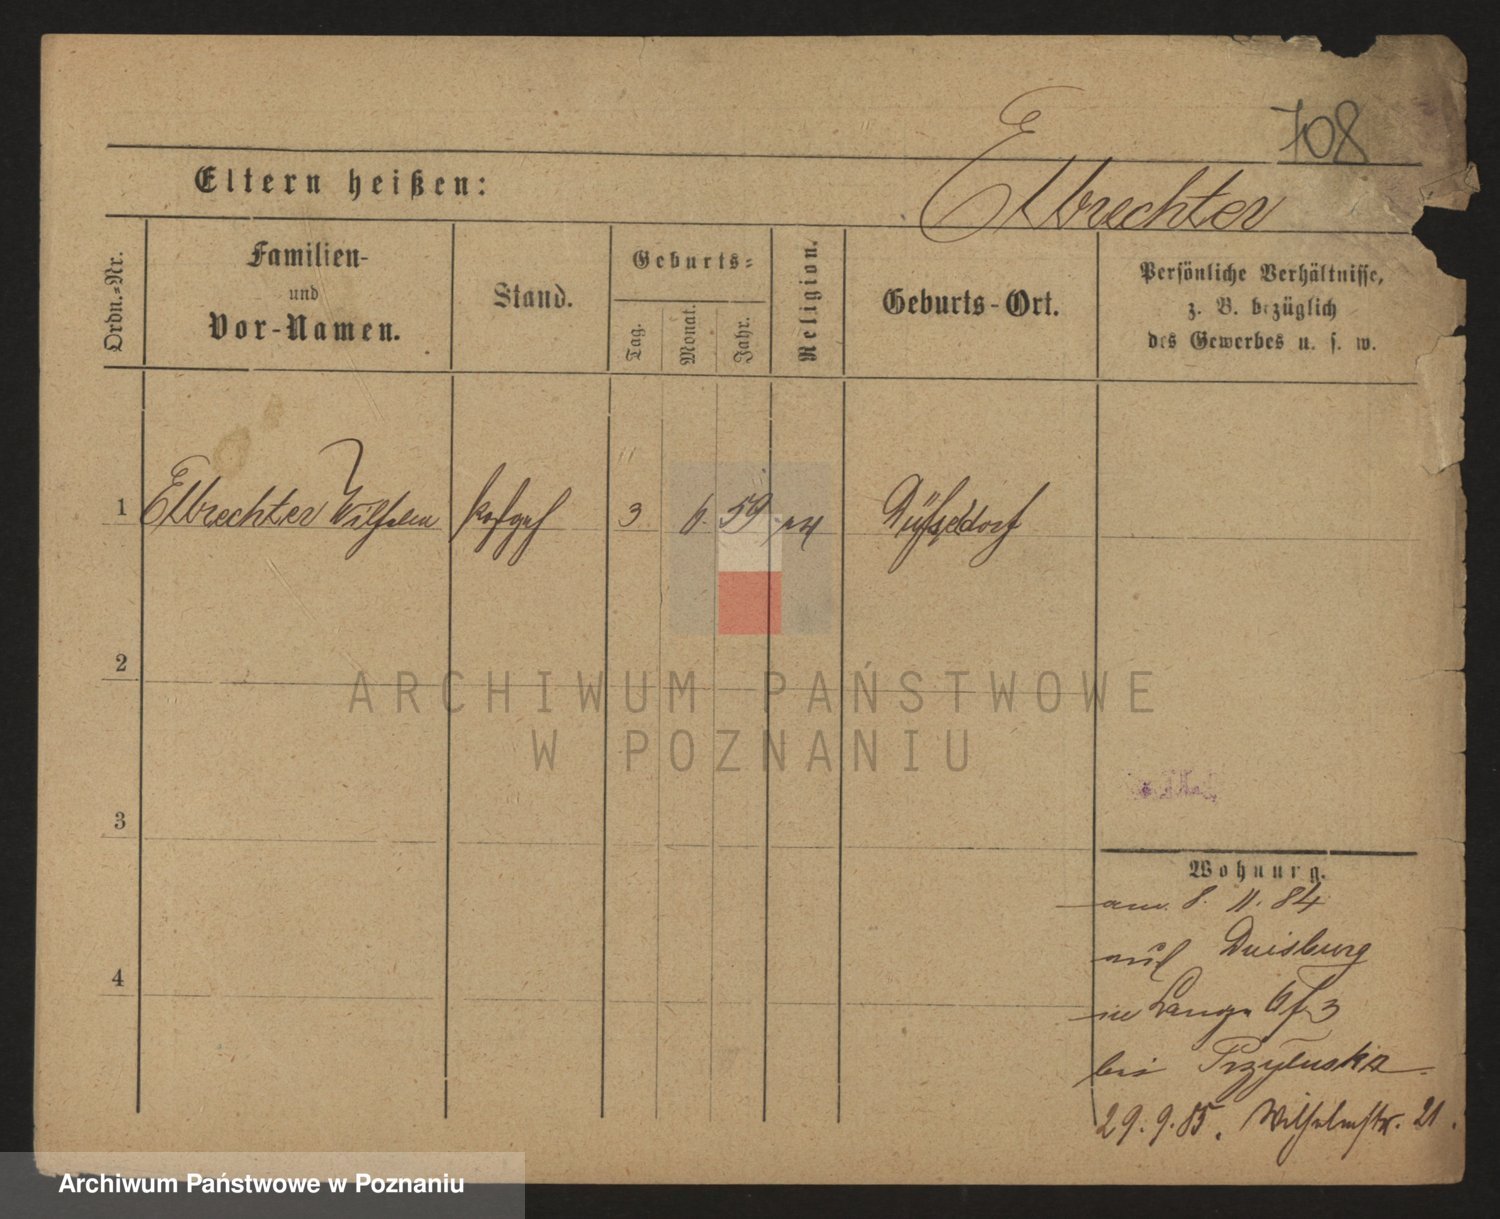 708
Eltern heißen:
Elbrechter
Ordn.-Nr.
Familien-
und
Vor-Namen.
Stand.
Geburts-
Tag.
Monat.
Jahr.
Religion.
Geburts-Ort.
Persönliche Verhältnisse,
z. B. bezüglich
des Gewerbes u. s. w.
1 Elbrechter Wilhelm 3 6. 59 Düsseldorf
2
ARCHIWUM PAŃSTWOWE
W POZNANIU
3
Wohnung.
am 8. 11. 84
Duisburg
in Lange 3
bei Przyluska
29. 9. 85. Wilhelmstr. 21.
4
Archiwum Państwowe w Poznaniu